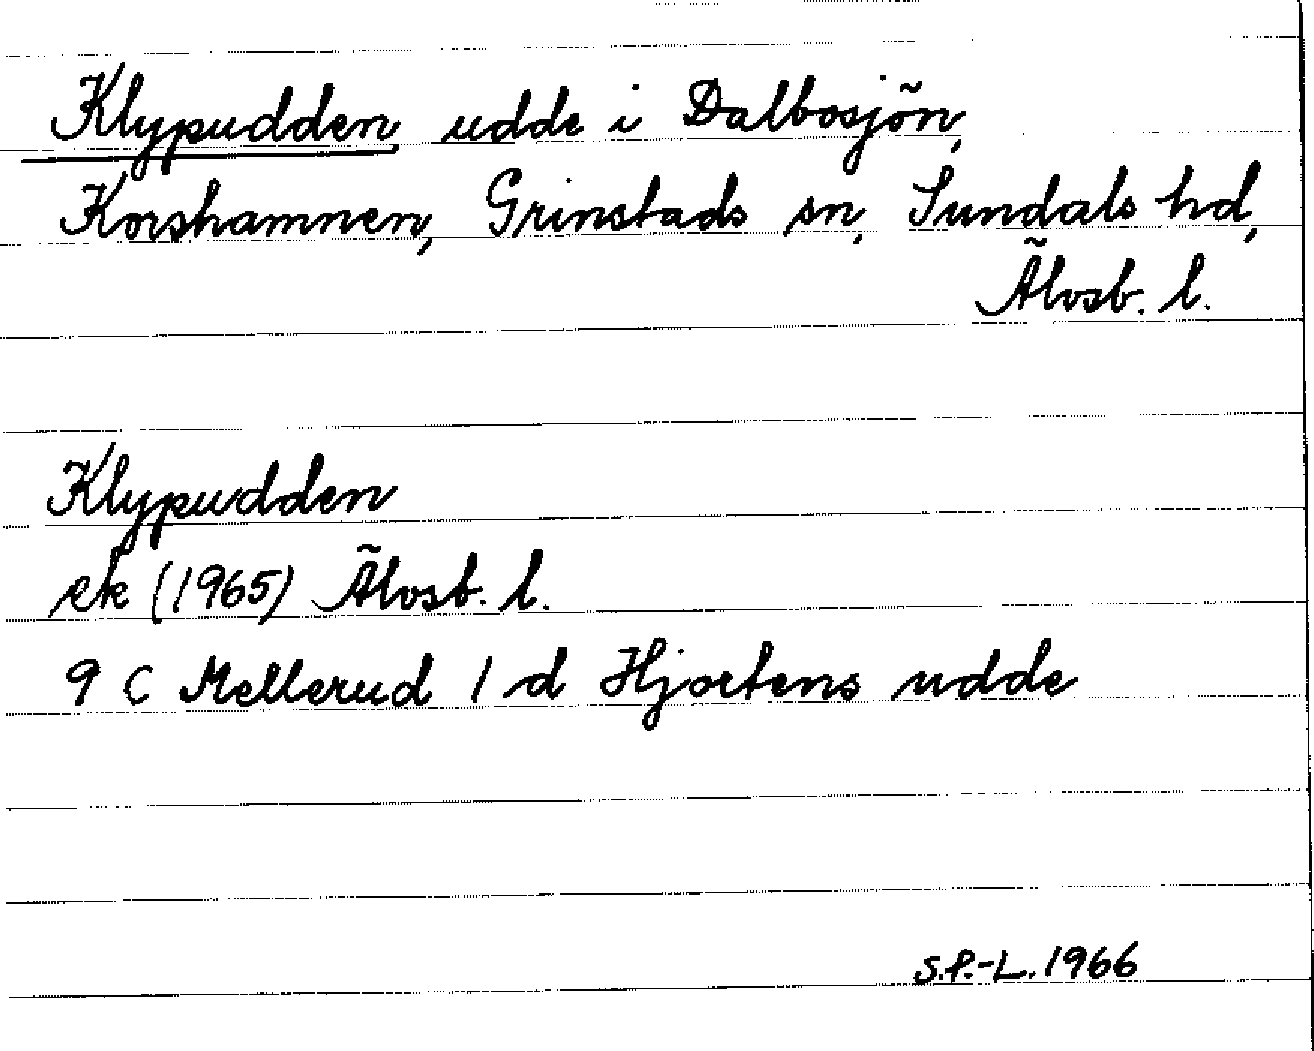 Klypudden udde i Dalbosjön,
Korshamnen, Grinstads sn, Sundals hd,
Älvsb. l.
Klypudden
ek (1965) Älvsb. l.
9 C Mellerud 1 d Hjortens udde
S.P.-L. 1966